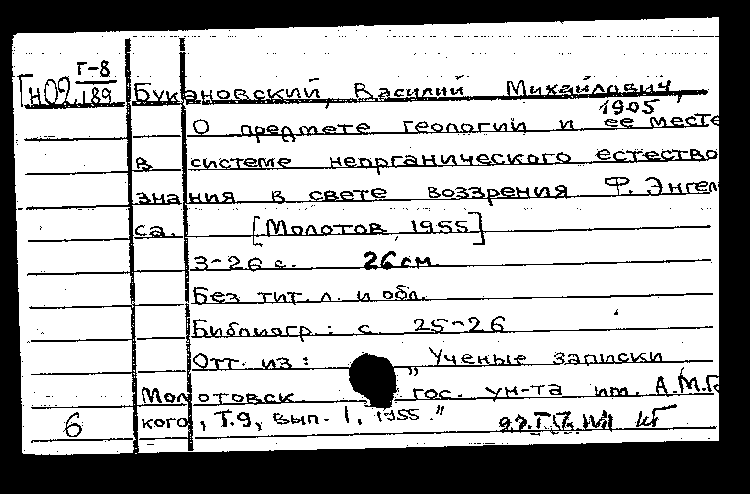 Г-8
Н02.189 Букановский, Василий Михайлович,
1905
О предмете геологии и ее месте
в системе неорганического естество
знания в свете воззрения Ф. Энгел
са. [Молотов, 1955]
3-26 с. 26 см.
Без тит. л. и обл.
Библиогр.: с. 25-26
Отт. из: "Ученые записки
Молотовск. гос. ун-та им. А.М.Г
кого, Т.9, вып. 1, 1955."
6